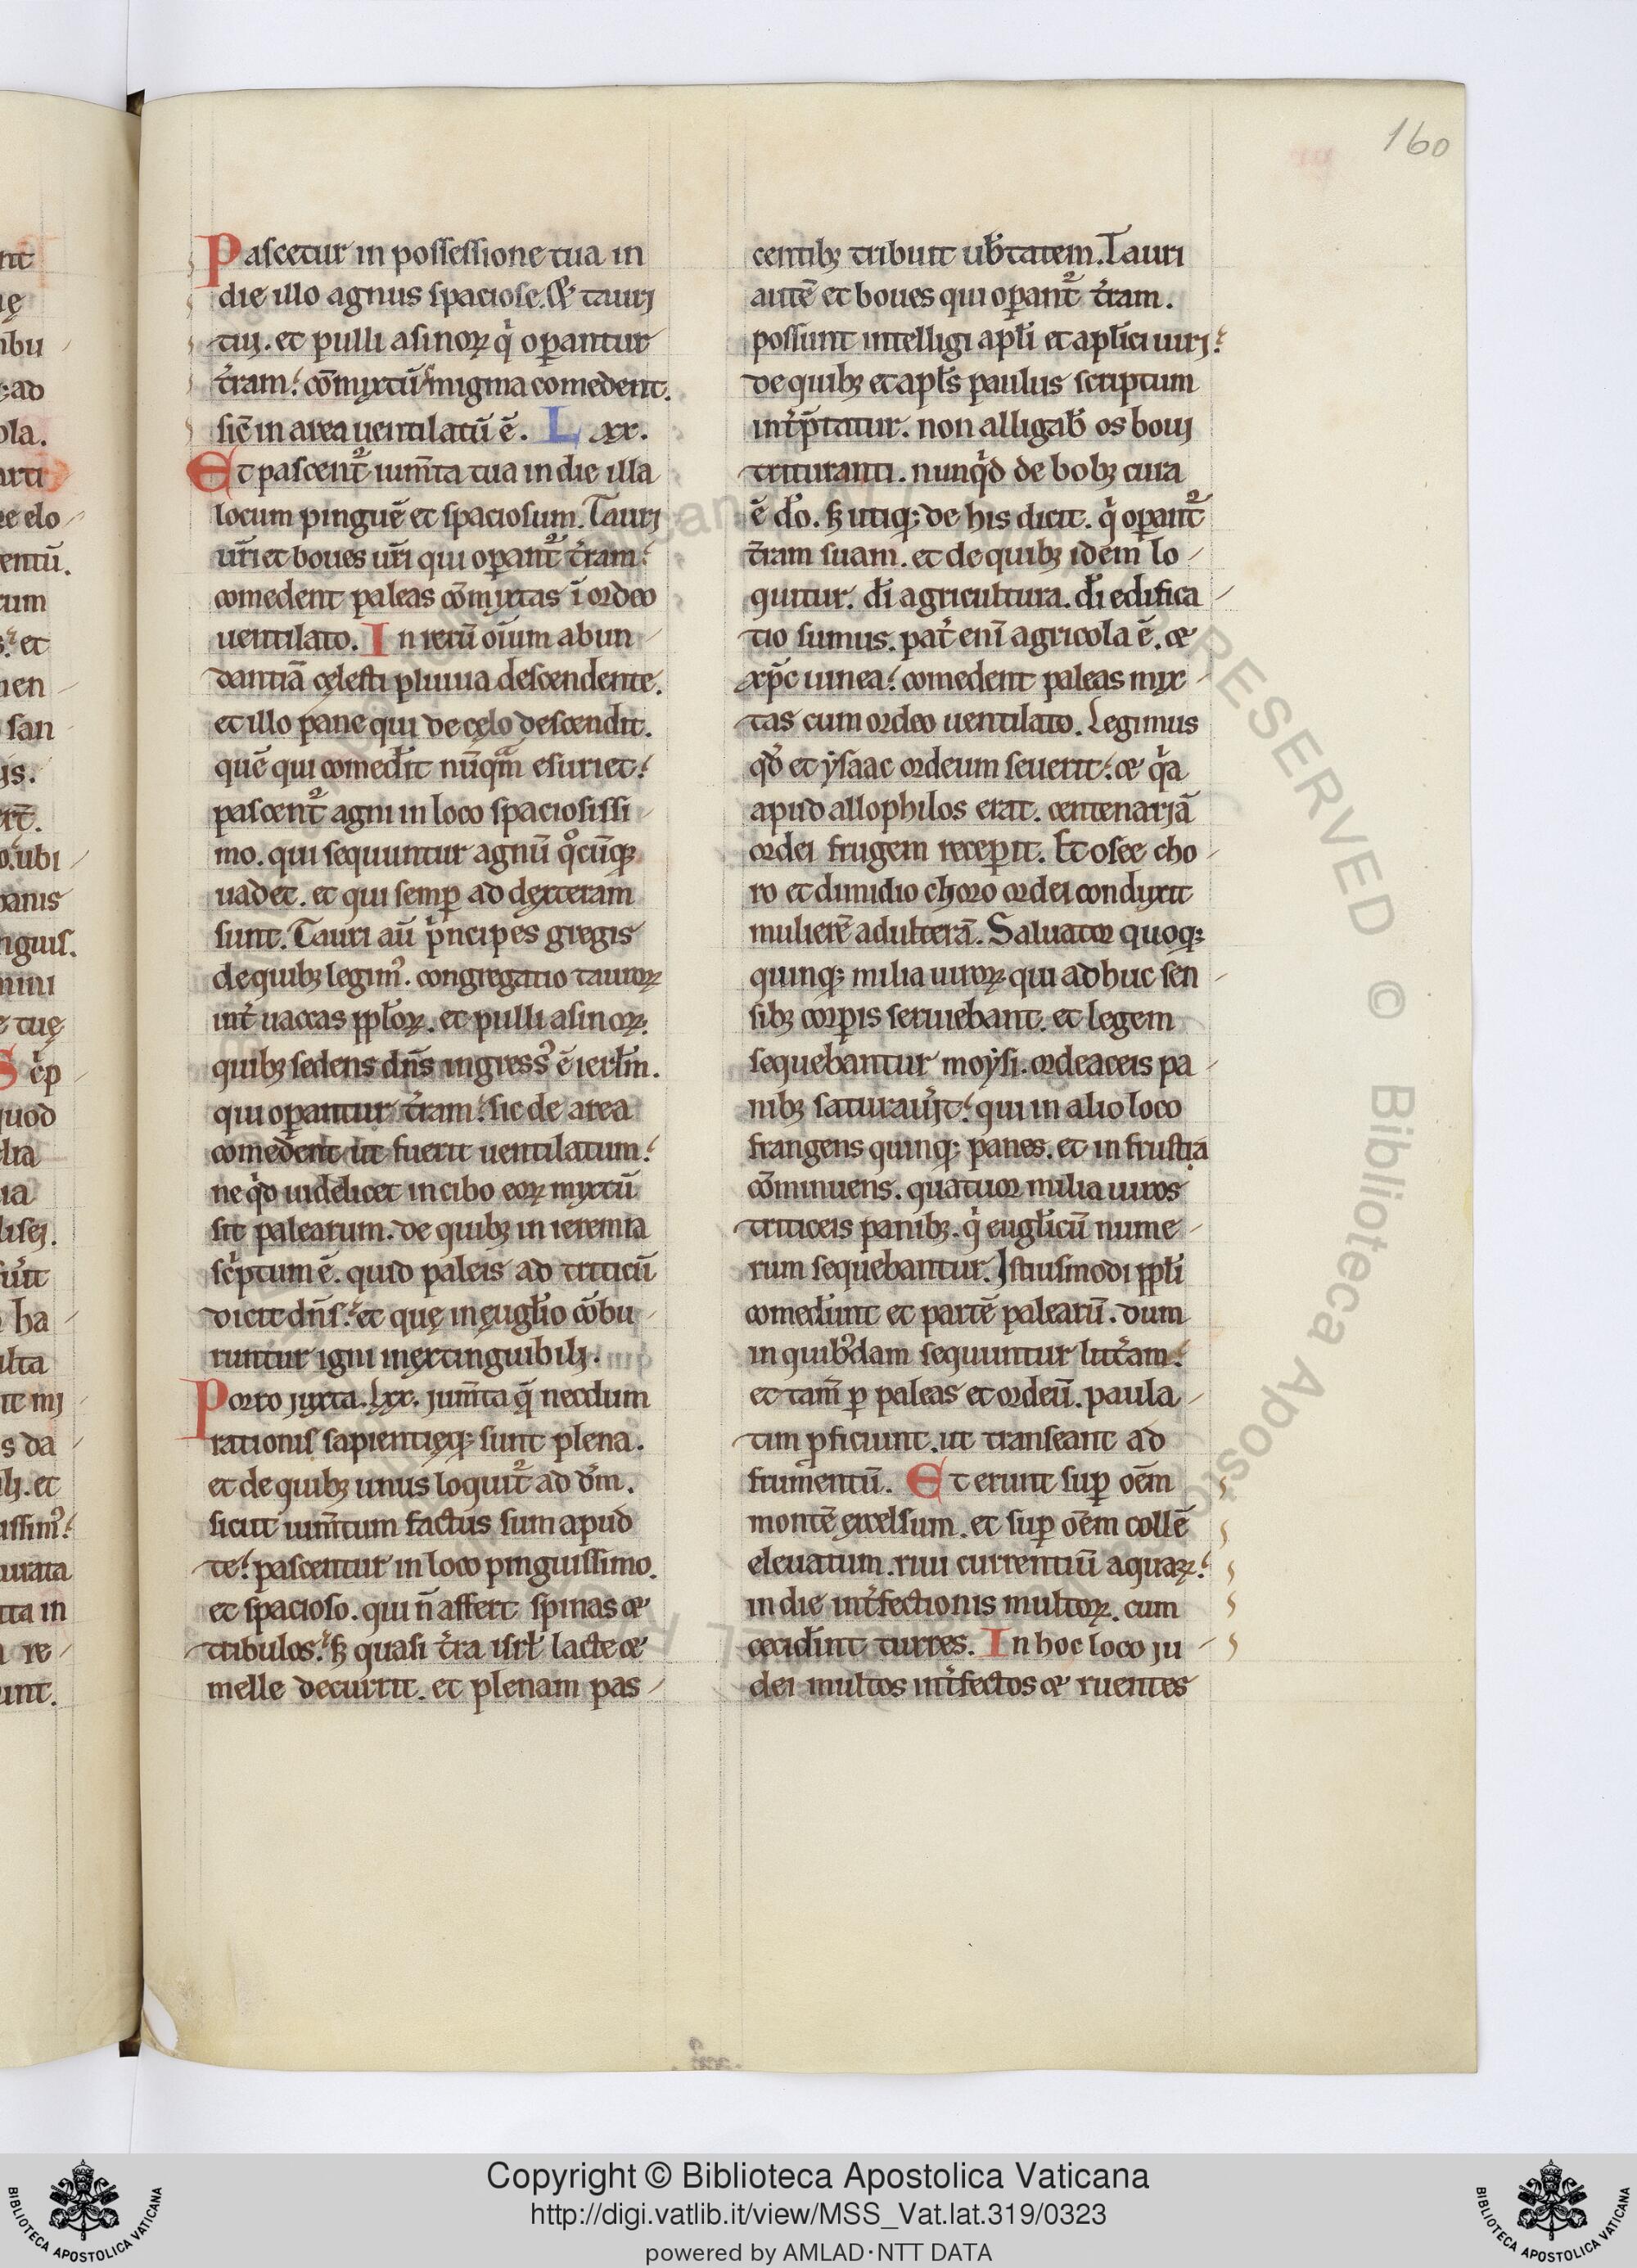 160
Pascetur in possessione tua in
die illo agnus spaciose. & taurj
tui. et pulli asinoꝝ qͥ oꝑantur
tr̃am. com̃ixtũ migma comedent.
sic̃ in area uentilatũ ẽ. Lxx.
Et pascent᷑ ium̃ta tua in die illa
locum pinguẽ et spaciosum. Taurj
ur̃i et boues ur̃i qui oꝑant᷑ tr̃am.
comedent paleas com̃ixtas ĩ ordeo
uentilato. In rerũ oĩum abun
dantiã cęlesti pluuia descendente.
et illo pane qui de cęlo descendit.
quẽ qui comed̃it nũqͣm esuriet.
pascent᷑ agni in loco spaciosissi
mo. qui sequuntur agnũ qͦcũqꝫ
uadet. et qui semꝑ ad dexteram
sunt. Tauri aũ pͥncipes gregis
de quibꝫ legimꝰ. congregatio tauroꝝ
int̃ uaccas ppl̃oꝝ. et pulli asinoꝝ.
quibꝫ sedens dñs ingressꝰ ẽ ierl̃m.
qui oꝑantur tr̃am. sic de area
comedent ut fuerit uentilatum.
ne qͥd uidelicet in cibo eoꝝ mixtũ
sit palearum. de quibꝫ in ieremia
scͥptum ẽ. quid paleis ad triticũ
dicit dñs. et quę in euglĩo com̃bu
runtur igni inextinguibilj.
Porro juxta. lxx. jum̃ta q̃ necdum
rationis sapientięqꝫ sunt plena.
et de quibꝫ unus loquit᷑ ad dm̃.
sicut ium̃tum factus sum apud
te. pascentur in loco pinguissimo.
et spacioso. qui ñ affert spinas &
tribulos. sꝫ quasi tr̃a isrl̃ lacte &
melle decurrit. et plenam pas
centibꝫ tribuit ub̃tatem. Tauri
autẽ et boues qui oꝑant᷑ tr̃am.
possunt intelligi apl̃i et apl̃ici uirj.
de quibꝫ et apl̃s paulus scriptum
int̃p̃tatur. non alligab̃ os bouj
trituranti. nunqͥd de bobꝫ cura
ẽ do̅. sꝫ utiqꝫ de his dicit. qͥ oꝑant᷑
tr̃am suam. et de quibꝫ idem lo
quitur. di̅ agricultura. di̅ edifica
tio sumus. pat̃ enĩ agricola ẽ. &
xp̃c uinea. comedent paleas mix
tas cum ordeo uentilato. Legimus
qd̃ et ysaac ordeum seuerit. & qͥa
apud allophilos erat. centenarjã
ordei frugem receꝑit. Et osee cho
ro et dimidio choro ordei conduxit
mulierẽ adulterã. Saluator quoqꝫ
quinqꝫ milia uiroꝝ. qui adhuc sen
sibꝫ corꝑis seruiebant. et legem
sequebantur moysi. ordeaceis pa
nibꝫ saturau̾jt. qui in alio loco
frangens quinqꝫ panes. et in frustra
com̃inuens. quatuor milia uiros
triticeis panibꝫ. qͥ eugl̃icũ nume
rum sequebantur. Istiusmodi ppl̃i
comed̃unt et partẽ palearũ. dum
in quibꝰdam sequuntur litt̃am.
et tam̃ ꝑ paleas et ordeũ. paula
tim ꝓficiunt. ut transeant ad
frumentũ. Et erunt suꝑ oẽm
montẽ excelsum. et suꝑ oẽm collẽ
eleuatum. riui currentiũ aquaꝝ.
in die int̃fectionis multoꝝ. cum
cecid̃int turres. In hoc loco ju
dei multos int̃fectos & ruentes
Copyright © Biblioteca Apostolica Vaticana
http://digi.vatlib.it/view/MSS_Vat.lat.319/0323
powered by AMLAD·NTT DATA